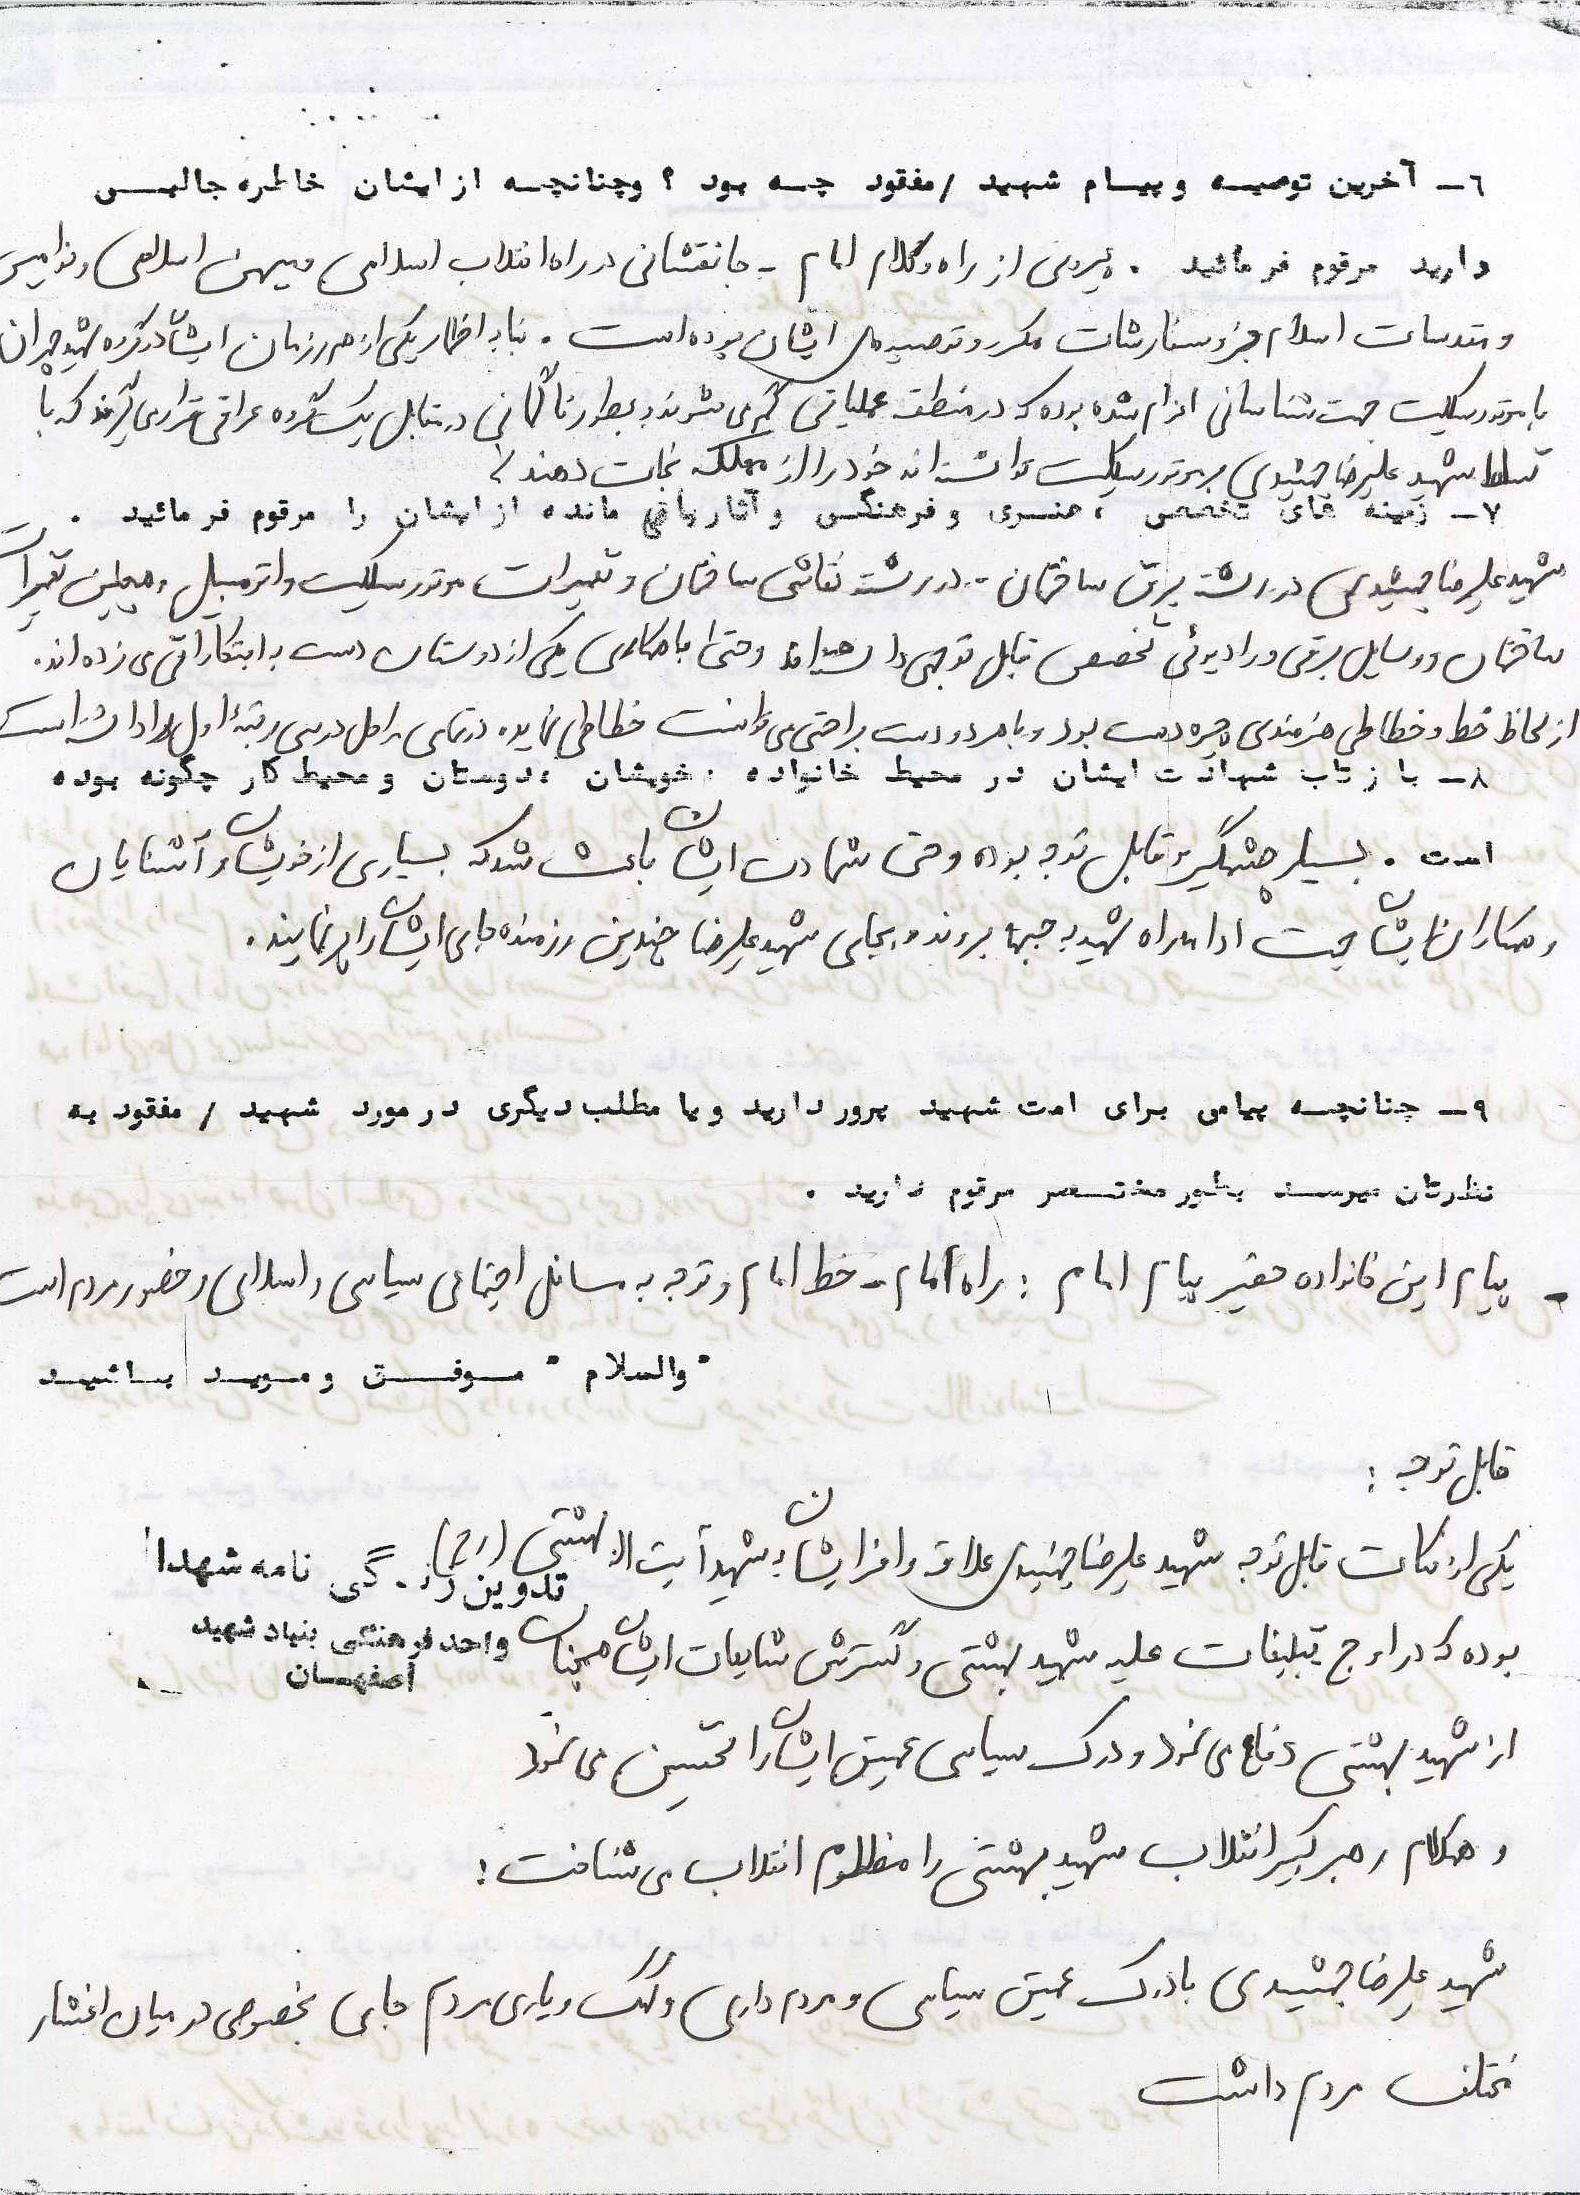 ٦ ـ آخرین توصیه و پیام شهید / مفقود چه بود ؟ و چنانچه از ایشان خاطره جالبی
دارید مرقوم فرمائید . پیروی از راه و کلام امام - جانفشانی در راه انقلاب اسلامی میهن اسلامی و نوامیس
و مقدسات اسلام جزو سفارشات مکرر و توصیه‌های ایشان بوده است . بنابه اظهار یکی از همرزمان ایشان در گروه شهید چمران
با موتورسیکلت جهت شناسائی اعزام شده بوده که در منطقه عملیاتی گم می‌شوند و بطور ناگهانی در مقابل یک گروه عراقی قرار می‌گیرند که با
تسلط شهید علیرضا جمشیدی بر موتورسیکلت توانسته‌اند خود را از مهلکه نجات دهند
٧ ـ زمینه های تخصصی ، هنری و فرهنگی و آثار باقی مانده از ایشان را مرقوم فرمائید .
شهید علیرضا جمشیدی در رشته برق ساختمان - در رشته نقاشی ساختمان و تعمیرات موتورسیکلت و اتومبیل و همچنین تعمیرات
ساختمان و وسایل برقی و رادیوئی تخصص قابل توجهی داشته‌اند و حتی با همکاری یکی از دوستان دست به ابتکاراتی می‌زده‌اند.
از لحاظ خط و خطاطی هنرمندی چیره دست بود و با هر دو دست براحتی می‌توانست خطاطی نماید. در تمامی مراحل درسی رتبهٔ اول را داشته است
٨ ـ بازتاب شهادت ایشان در محیط خانواده ، خویشان ، دوستان و محیط کار چگونه بوده
است . بسیار چشمگیر و قابل توجه بوده و حتی شهادت ایشان باعث شد که بسیاری از خویشان و آشنایان
و همکاران ایشان جهت ادامه راه شهید به جبهه‌ها بروند و بجای شهید علیرضا چندین رزمنده جای ایشان را پر نمایند.
٩ ـ چنانچه پیامی برای امت شهید پرور دارید و یا مطلب دیگری در مورد شهید / مفقود به
نظرتان میرسد بطور مختصر مرقوم دارید .
- پیام این خانواده حقیر پیام امام : راه امام - خط امام و توجه به مسائل اجتماعی سیاسی و اسلامی و حضور مردم است
" والسلام " موفق و موید باشید
قابل توجه :
یکی از نکات قابل توجه شهید علیرضا جمشیدی علاقه وافر ایشان به شهید آیت الله بهشتی (ره)
تدوین زندگی نامه شهدا
بوده که در اوج تبلیغات علیه شهید بهشتی و گسترش شایعات ایشان همچنان
واحد فرهنگی بنیاد شهید
اصفهان
از شهید بهشتی دفاع می‌نمود و درک سیاسی عمیق ایشان را تحسین می‌نمود
و همکلام رهبر کبیر انقلاب شهید بهشتی را مظلوم انقلاب می‌شناخت :
شهید علیرضا جمشیدی با درک عمیق سیاسی و مردم داری و کمک و یاری مردم جای بخصوصی در میان اقشار
مختلف مردم داشت